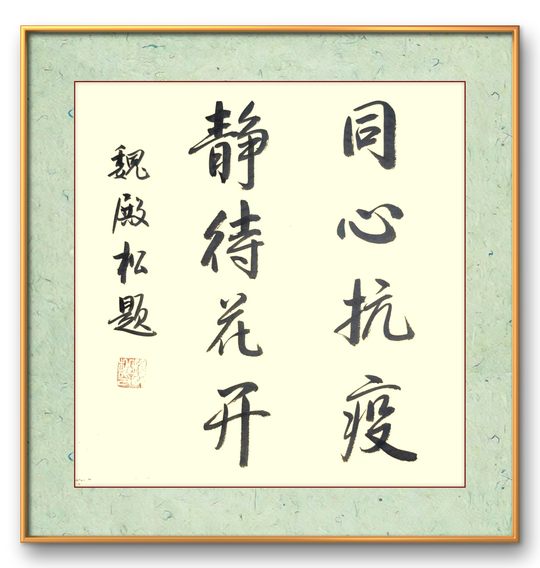 同心抗疫
静待花开
魏殿松题